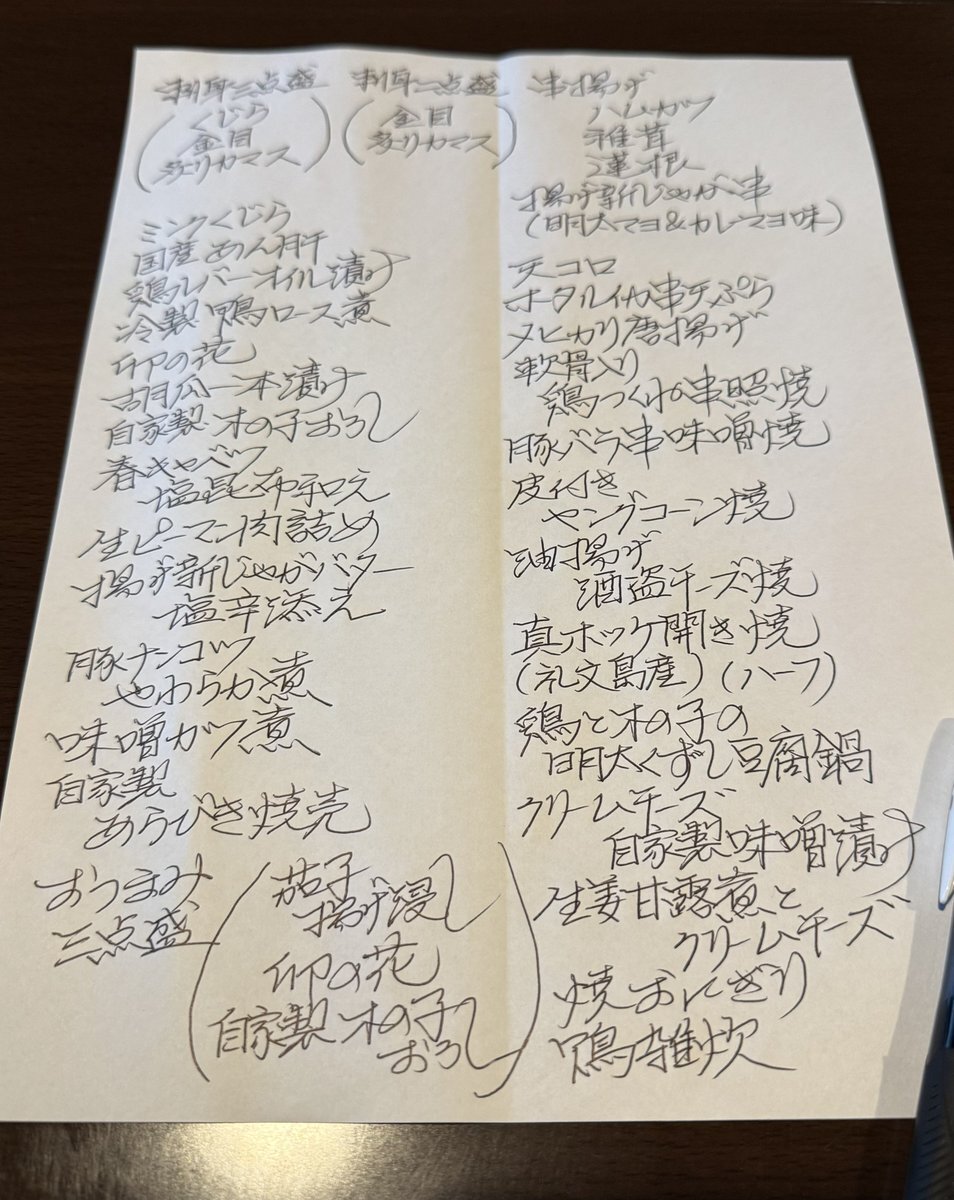 刺身三点盛
(くじら
金目
炙りカマス)
刺身二点盛
(金目
炙りカマス)
ミンクくじら
国産あん肝
鶏レバーオイル漬け
冷製 鴨ロース煮
卯の花
胡瓜一本漬け
自家製 木の子おろし
春キャベツ
塩昆布和え
生ピーマン肉詰め
揚げ新じゃがバター
塩辛添え
豚ナンコツ
やわらか煮
味噌カツ煮
自家製
あらびき焼売
おつまみ
三点盛
(茄子
揚げ浸し
卯の花
自家製 木の子
おろし)
串揚げ
ハムカツ
椎茸
蓮根
揚げ新じゃが串
(明太マヨ&カレーマヨ味)
天コロ
ホタルイカ串天ぷら
メヒカリ唐揚げ
軟骨入り
鶏つくねの串照焼
豚バラ串味噌焼
皮付き
ヤングコーン焼
油揚げ
酒盗チーズ焼
真ホッケ開き焼
(礼文島産)(ハーフ)
鶏と木の子の
明太くずし豆腐鍋
クリームチーズ
自家製味噌漬け
生姜甘露煮と
クリームチーズ
焼おにぎり
鶏雑炊